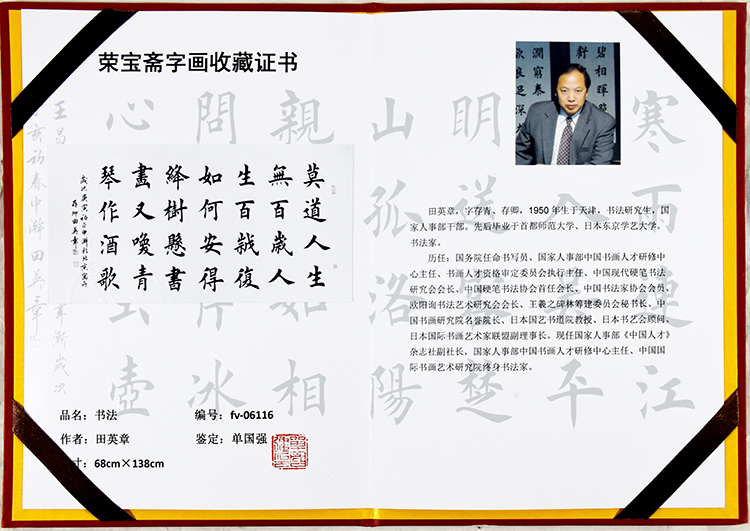 荣宝斋字画收藏证书
莫道人生
無百歲人
生百復
如何安得
絳樹懸書
畫又喚青
琴作酒歌
品名：书法
编号：fv-06116
作者：田英章
鉴定：单国强
寸：68cm×138cm
田英章，字存青、存卿，1950年生于天津，书法研究生，国
家人事部干部。先后毕业于首都师范大学、日本东京学艺大学。
书法家。
历任：国务院任命书写员、国家人事部中国书画人才研修中
心主任、人事部人才资格审定委员会执行主任、中国现代硬笔书法
研究会会长、中国硬笔书法协会首任会长、中国书法家协会会员、
欧阳询书法艺术研究会会长、王羲之碑林筹建委员会秘书长、中
国书画研究院名誉院长、日本国艺书道院教授、日本书艺会顾问、
日本国际书画艺术家联盟副理事长。现任国家人事部《中国人才》
杂志社副社长，国家人事部中国书画人才研修中心主任、中国国
际书画艺术研究院终身书法家。
寒雨連江
入平
明送楚
山孤洛陽
親如相
問冰
心壺